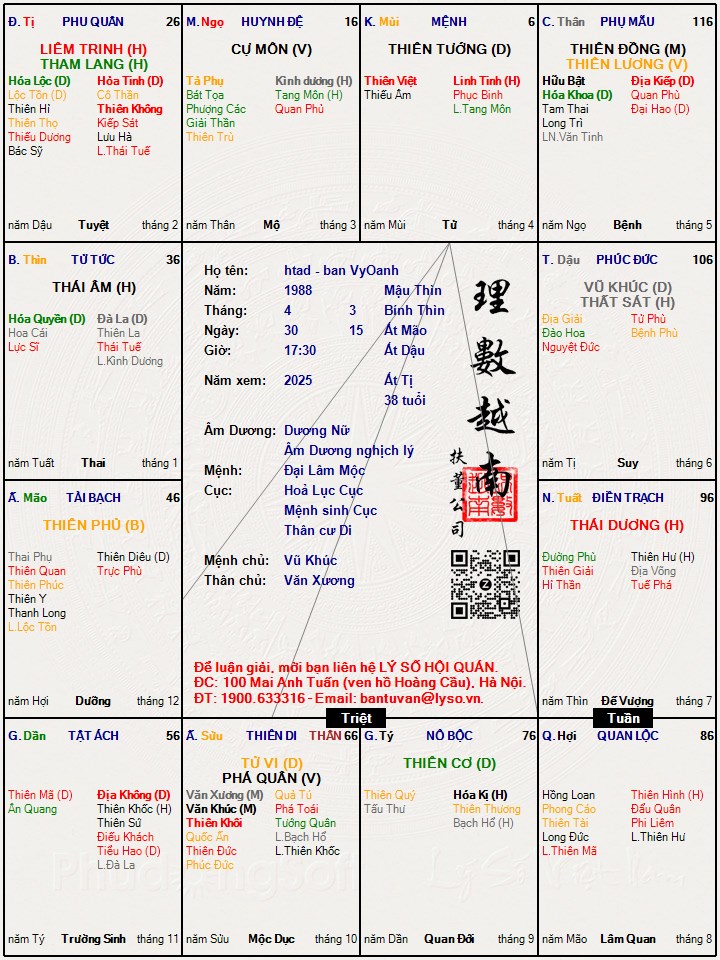 Đ. Tị PHU QUÂN 26
LIÊM TRINH (H)
THAM LANG (H)
Hóa Lộc (Đ) Hỏa Tinh (Đ)
Lộc Tồn (Đ) Cô Thần
Thiên Hỉ Thiên Không
Thiên Thọ Kiếp Sát
Thiếu Dương Lưu Hà
Bác Sỹ L.Thái Tuế
năm Dậu Tuyệt tháng 2
M. Ngọ HUYNH ĐỆ 16
CỰ MÔN (V)
Tả Phụ Kình dương (H)
Bát Tọa Tang Môn (H)
Phượng Các Quan Phủ
Giải Thần
Thiên Trù
năm Thân Mộ tháng 3
K. Mùi MỆNH 6
THIÊN TƯỚNG (Đ)
Thiên Việt Linh Tinh (H)
Thiếu Âm Phục Binh
L.Tang Môn
năm Mùi Tử tháng 4
C. Thân PHỤ MẪU 116
THIÊN ĐỒNG (M)
THIÊN LƯƠNG (V)
Hữu Bật Địa Kiếp (Đ)
Hóa Khoa (Đ) Quan Phù
Tam Thai Đại Hao (Đ)
Long Trì
LN.Văn Tinh
năm Ngọ Bệnh tháng 5
B. Thìn TỬ TỨC 36
THÁI ÂM (H)
Hóa Quyền (Đ) Đà La (Đ)
Hoa Cái Thiên La
Lực Sĩ Thái Tuế
L.Kình Dương
năm Tuất Thai tháng 1
Họ tên: htad - ban VyOanh
Năm: 1988 Mậu Thìn
Tháng: 4 3 Bính Thìn
Ngày: 30 15 Ất Mão
Giờ: 17:30 Ất Dậu
Năm xem: 2025 Ất Tị
38 tuổi
Âm Dương: Dương Nữ
Âm Dương nghịch lý
Mệnh: Đại Lâm Mộc
Cục: Hoả Lục Cục
Mệnh sinh Cục
Thân cư Di
Mệnh chủ: Vũ Khúc
Thân chủ: Văn Xương
理數越南
扶董公司
Để luận giải, mời bạn liên hệ LÝ SỐ HỘI QUÁN.
ĐC: 100 Mai Anh Tuấn (ven hồ Hoàng Cầu), Hà Nội.
ĐT: 1900.633316 - Email: bantuvan@lyso.vn.
T. Dậu PHÚC ĐỨC 106
VŨ KHÚC (Đ)
THẤT SÁT (H)
Địa Giải Tử Phù
Đào Hoa Bệnh Phù
Nguyệt Đức
năm Tị Suy tháng 6
Ấ. Mão TÀI BẠCH 46
THIÊN PHỦ (B)
Thai Phụ Thiên Diêu (Đ)
Thiên Quan Trực Phù
Thiên Phúc
Thiên Y
Thanh Long
L.Lộc Tồn
năm Hợi Dưỡng tháng 12
N. Tuất ĐIỀN TRẠCH 96
THÁI DƯƠNG (H)
Đường Phù Thiên Hư (H)
Thiên Giải Địa Võng
Hỉ Thần Tuế Phá
năm Thìn Đế Vượng tháng 7
Triệt
Tuần
G. Dần TẬT ÁCH 56
Thiên Mã (Đ) Địa Không (Đ)
Ân Quang Thiên Khốc (H)
Thiên Sứ
Điếu Khách
Tiểu Hao (Đ)
L.Đà La
năm Tý Trường Sinh tháng 11
Ấ. Sửu THIÊN DI THÂN 66
TỬ VI (Đ)
PHÁ QUÂN (V)
Văn Xương (M) Quả Tú
Văn Khúc (M) Phá Toái
Thiên Khôi Tướng Quân
Quốc Ấn L.Bạch Hổ
Thiên Đức L.Thiên Khốc
Phúc Đức
năm Sửu Mộc Dục tháng 10
G. Tý NÔ BỘC 76
THIÊN CƠ (Đ)
Thiên Quý Hóa Kị (H)
Tấu Thư Thiên Thương
Bạch Hổ (H)
năm Dần Quan Đới tháng 9
Q. Hợi QUAN LỘC 86
Hồng Loan Thiên Hình (H)
Phong Cáo Đẩu Quân
Thiên Tài Phi Liêm
Long Đức L.Thiên Hư
L.Thiên Mã
năm Mão Lâm Quan tháng 8